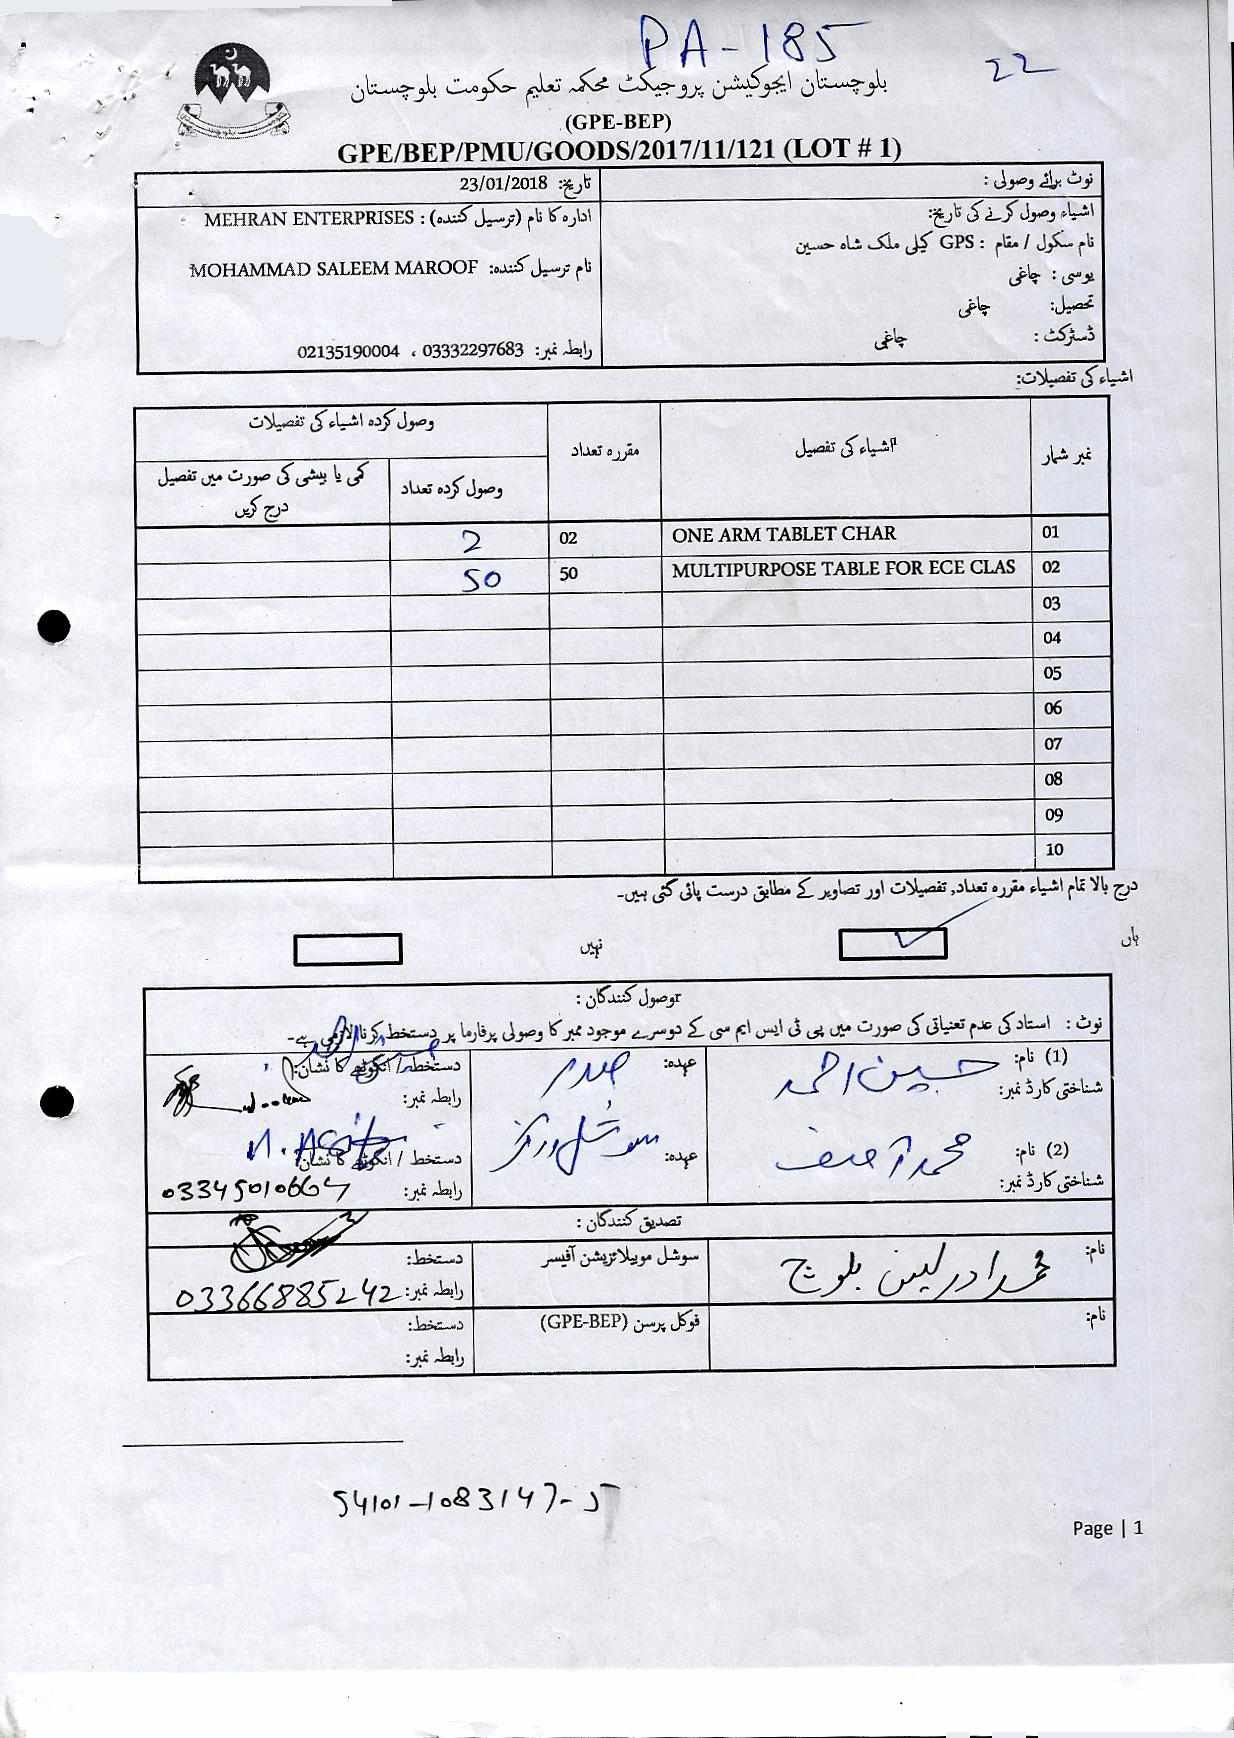 PA-185
22
بلوچستان ایجوکیشن پروجیکٹ محکمہ تعلیم حکومت بلوچستان
(GPE-BEP)
GPE/BEP/PMU/GOODS/2017/11/121 (LOT # 1)
نوٹ برائے وصولی :
تاریخ: 23/01/2018
اشیاء وصول کرنے کی تاریخ:
ادارہ کا نام (ترسیل کنندہ) : MEHRAN ENTERPRISES
نام سکول / مقام : GPS کیلی ملک شاہ حسین
نام ترسیل کنندہ: MOHAMMAD SALEEM MAROOF
یوسی : چاغی
تحصیل: چاغی
ڈسٹرکٹ : چاغی
رابطہ نمبر: 03332297683 ، 02135190004
اشیاء کی تفصیلات:
نمبر شمار
اشیاء کی تفصیل
مقررہ تعداد
وصول کردہ اشیاء کی تفصیلات
وصول کردہ تعداد
کمی یا بیشی کی صورت میں تفصیل
درج کریں
01 ONE ARM TABLET CHAR 02 2
02 MULTIPURPOSE TABLE FOR ECE CLAS 50 50
03
04
05
06
07
08
09
10
درج بالا تمام اشیاء مقررہ تعداد, تفصیلات اور تصاویر کے مطابق درست پائی گئی ہیں۔
ہاں
نہیں
وصول کنندگان :
نوٹ : استاد کی عدم تعنیاتی کی صورت میں پی ٹی ایس ایم سی کے دوسرے موجود ممبر کا وصولی پرفارما پر دستخط کرنا لازمی ہے۔
(1) نام: حسین احمد
عہدہ: صدر
دستخط / انگوٹھے کا نشان:
شناختی کارڈ نمبر:
رابطہ نمبر:
(2) نام: محمد آصف
عہدہ: سوشل ورکر
دستخط / انگوٹھے کا نشان: M. Asif
شناختی کارڈ نمبر:
رابطہ نمبر: 03345010664
تصدیق کنندگان :
نام: محمد ادریس بلوچ
سوشل موبیلائزیشن آفیسر
دستخط:
رابطہ نمبر: 03366885242
نام:
فوکل پرسن (GPE-BEP)
دستخط:
رابطہ نمبر:
54101-1083147-5
Page | 1